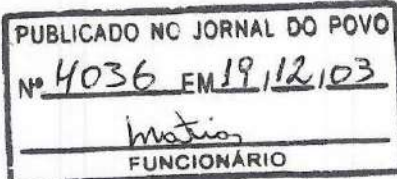 PUBLICADO NO JORNAL DO POVO
Nº 4036 EM 19,12,03
FUNCIONÁRIO